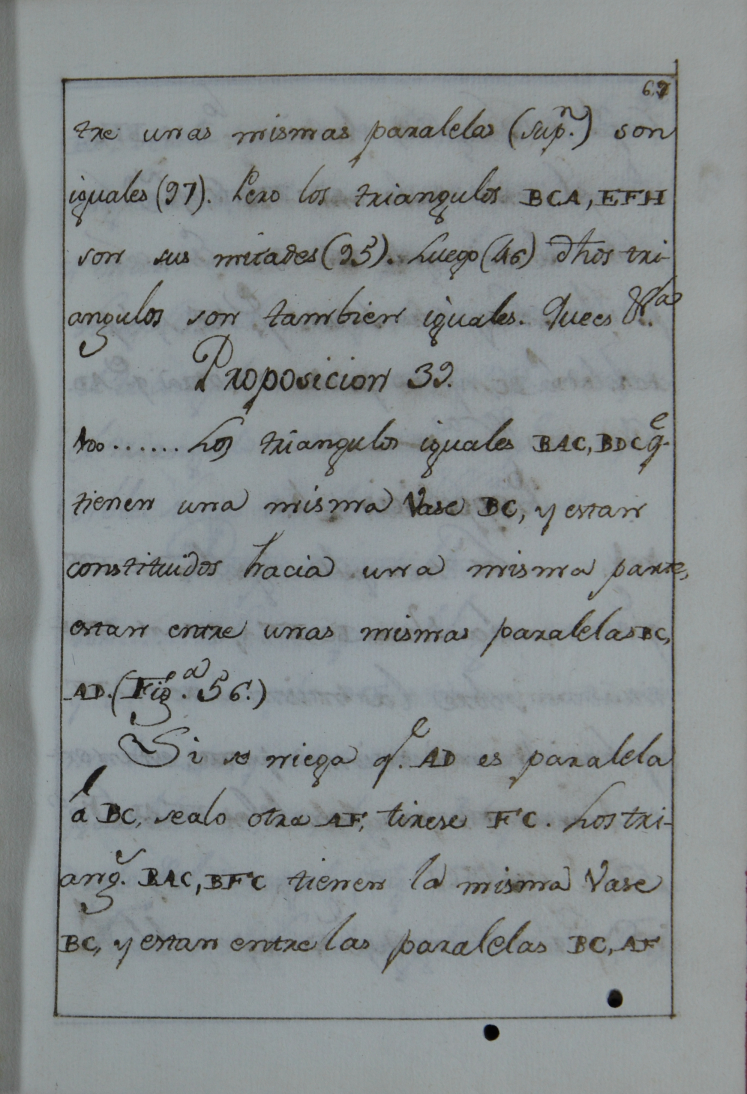 67
tre unas mismas paralelas (sup.n) son
iguales (97). Pero los triangulos BCA, EFH
son sus mitades (95). Luego (46) dhos tri-
angulos son tambien iguales. Que es &.
Proposicion 39.
100...... Los triangulos iguales BAC, BDC q.e
tienen una misma Vase BC, y estan
constituidos hacia una misma parte,
estan entre unas mismas paralelas BC,
AD. (Fig.a 56.)
Si se niega q.e AD es paralela
á BC, sealo otra AF, tirese FC. Los tri-
ang.s BAC, BFC tienen la misma Vase
BC, y estan entre las paralelas BC, AF